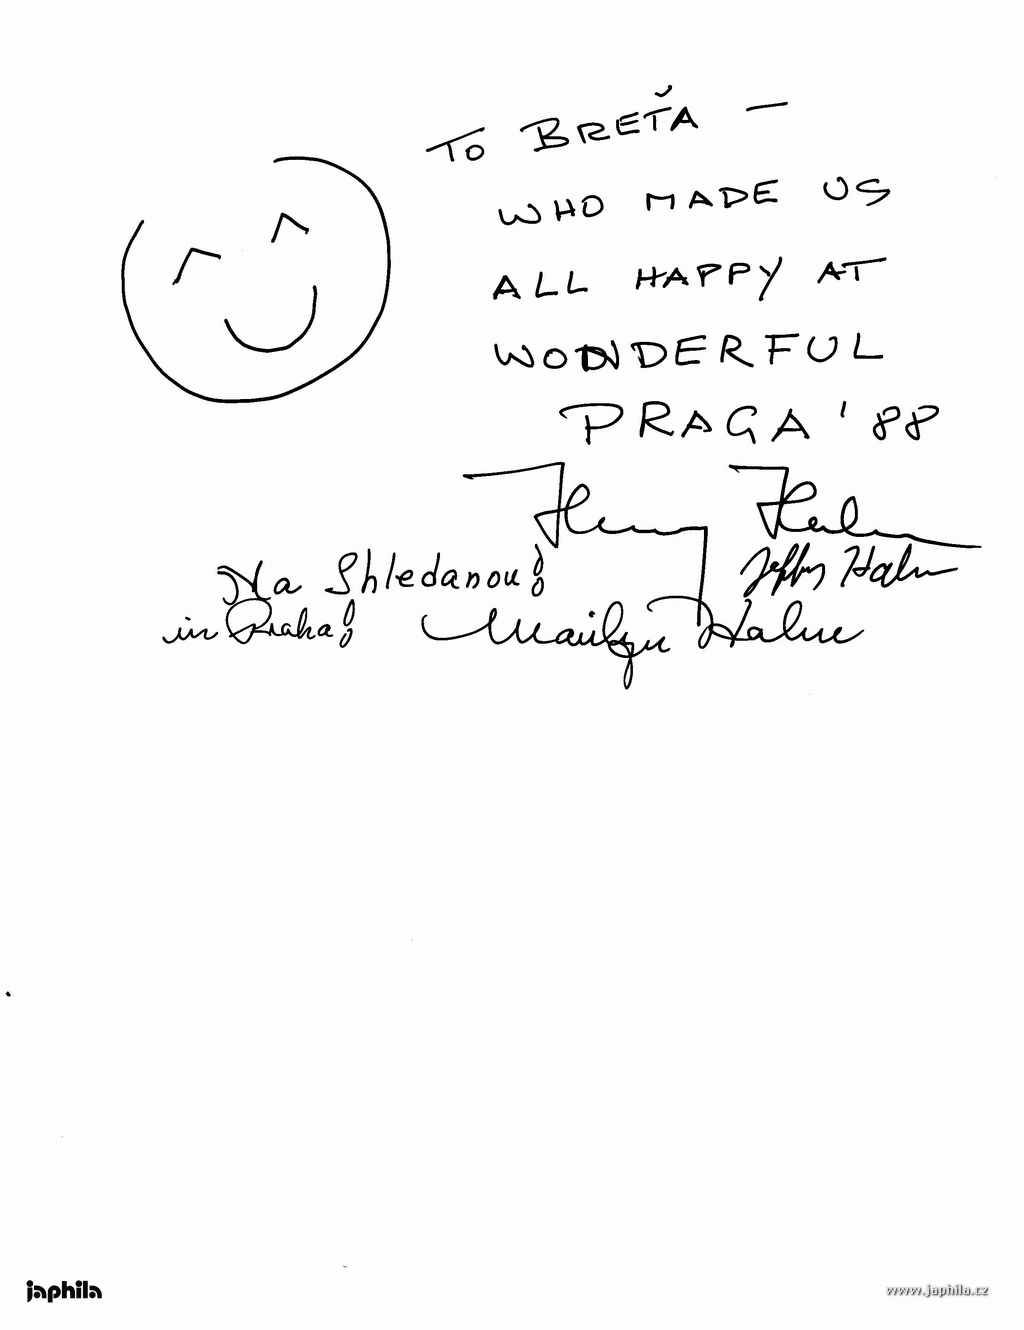 TO BREŤA —
WHO MADE US
ALL HAPPY AT
WONDERFUL
PRAGA '88
Henry Hahn
Jeffrey Hahn
Na Shledanou!
in Praha!
Marilyn Hahn
japhila
www.japhila.cz